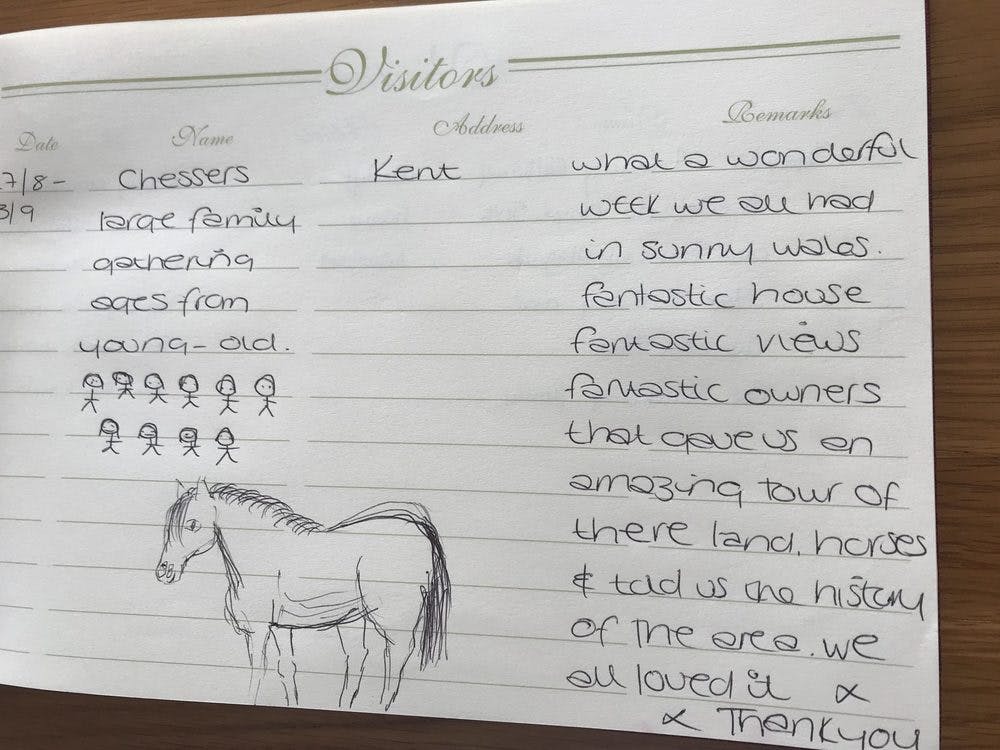 Visitors
Date Name Address Remarks
7/8 - Chessers Kent what a wonderful
3/9 large family week we all had
gathering in sunny wales.
ages from fantastic house
young - old. fantastic views
fantastic owners
that gave us an
amazing tour of
there land, horses
& told us the history
of the area. we
all loved it x
x Thankyou